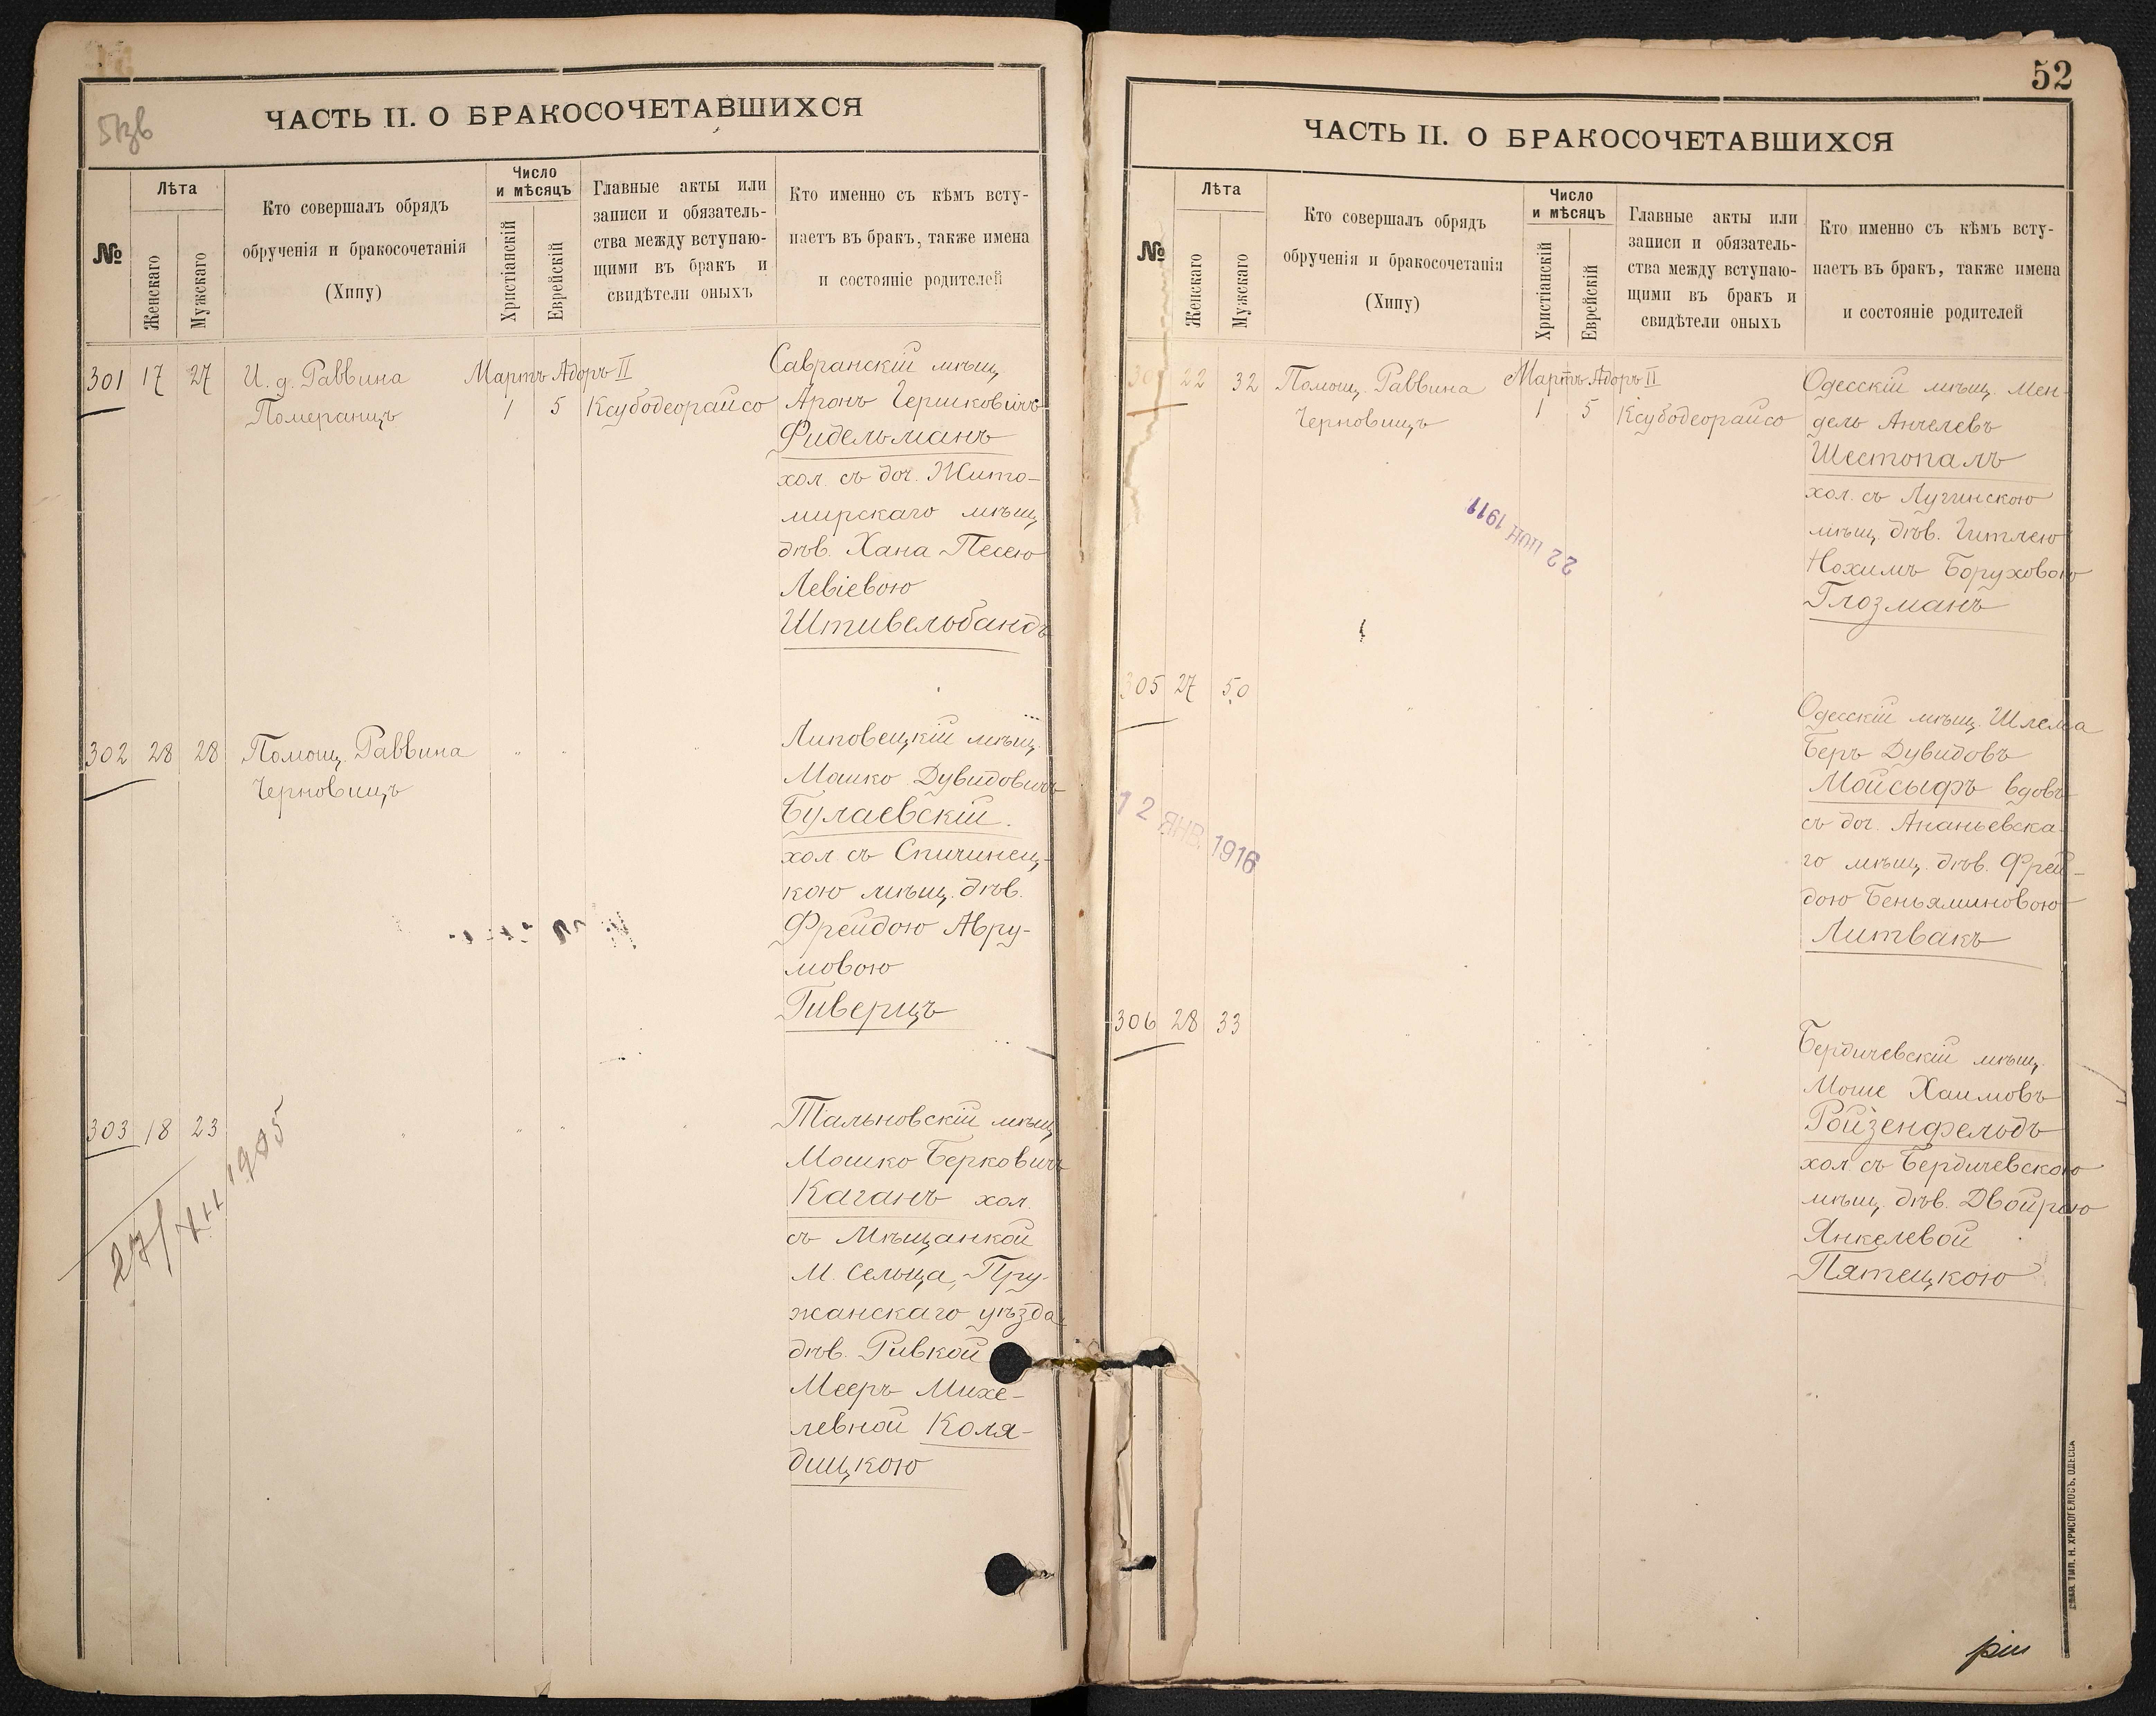 51зв
ЧАСТЬ II. О БРАКОСОЧЕТАВШИХСЯ
№
Лѣта
Женскаго
Мужскаго
Кто совершалъ обрядъ
обрученія и бракосочетанія
(Хипу)
Число
и мѣсяцъ
Христіанскій
Еврейскій
Главные акты или
записи и обязатель-
ства между вступаю-
щими въ бракъ и
свидѣтели оныхъ
Кто именно съ кѣмъ всту-
паетъ въ бракъ, также имена
и состояніе родителей
301 17 27 И. д. Раввина Мартъ Адоръ II
Померанцъ 1 5 Ксубодеорайсо
Савранскій мѣщ.
Аронъ Гершковичъ
Фидельманъ
хол. съ доч. Жито-
мирскаго мѣщ.
дѣв. Хана-Песею
Левіевою
Штивельбандъ
302 28 28 Помощ. Раввина " " "
Черновицъ
Липовецкій мѣщ.
Мошко Дувидовичъ
Булаевскій.
хол. съ Спичинец-
кою мѣщ. дѣв.
Фрейдою Авру-
мовою
Гиверцъ
303 18 23 " " " "
27/XII 1985
Тальновскій мѣщ.
Мошко Берковичъ
Каганъ хол.
съ Мѣщанкой
М. Сельца, Пру-
жанскаго уѣзда
дѣв. Ривкой
Мееръ Михе-
левной Коля-
дицкою
52
ЧАСТЬ II. О БРАКОСОЧЕТАВШИХСЯ
№
Лѣта
Женскаго
Мужскаго
Кто совершалъ обрядъ
обрученія и бракосочетанія
(Хипу)
Число
и мѣсяцъ
Христіанскій
Еврейскій
Главные акты или
записи и обязатель-
ства между вступаю-
щими въ бракъ и
свидѣтели оныхъ
Кто именно съ кѣмъ всту-
паетъ въ бракъ, также имена
и состояніе родителей
304 22 32 Помощ. Раввина Мартъ Адоръ II
Черновицъ 1 5 Ксубодеорайсо
Одесскій мѣщ. Мен-
дель Анчелевъ
Шестопалъ
хол. съ Лугинскою
мѣщ. дѣв. Гитлею
Нохимъ Боруховою
Глозманъ
22 ІЮН 1911
305 27 50 " " " "
Одесскій мѣщ. Шлема
Беръ Дувидовъ
Мойсыфъ вдовъ
съ доч. Ананьевска-
го мѣщ. дѣв. Фрей-
дою Беньяминовою
Литвакъ
12 ЯНВ. 1916
306 28 33 " " " "
Бердичевскій мѣщ.
Моше Хаимовъ
Ройзенфельдъ
хол. съ Бердичевскою
мѣщ. дѣв. Двойрою
Янкелевой
Пятецкою
ТИП. Н. ХРИСОГЕЛОСЪ, ОДЕССА